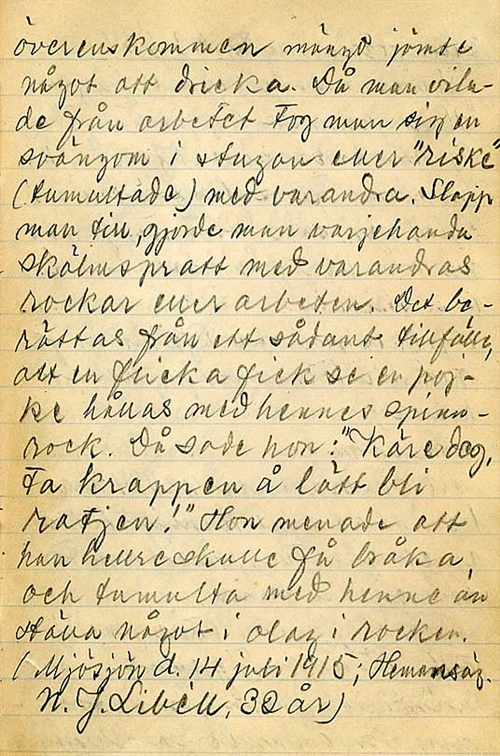 överenskommen mängd jämte
något att dricka. Då man vila-
de från arbetet tog man sig en
svängom i stugan eller "riske"
(tumultade) med varandra. Slapp
man till, gjorde man varjehanda
skälmspratt med varandras
rockar eller arbeten. Det be-
rättas från ett sådant tillfälle,
att en flicka fick se en poj-
ke hållas med hennes spinn-
rock. Då sade hon: "Käre dog,
ta krappen å lätt bli
ratjen!" Hon menade att
han hellre skulle få bråka
och tumulta med henne än
ställa något i olag i rocken.
(Mjösjön d. 14 juli 1915; Hemmansäg.
N. J. Libell, 32 år)